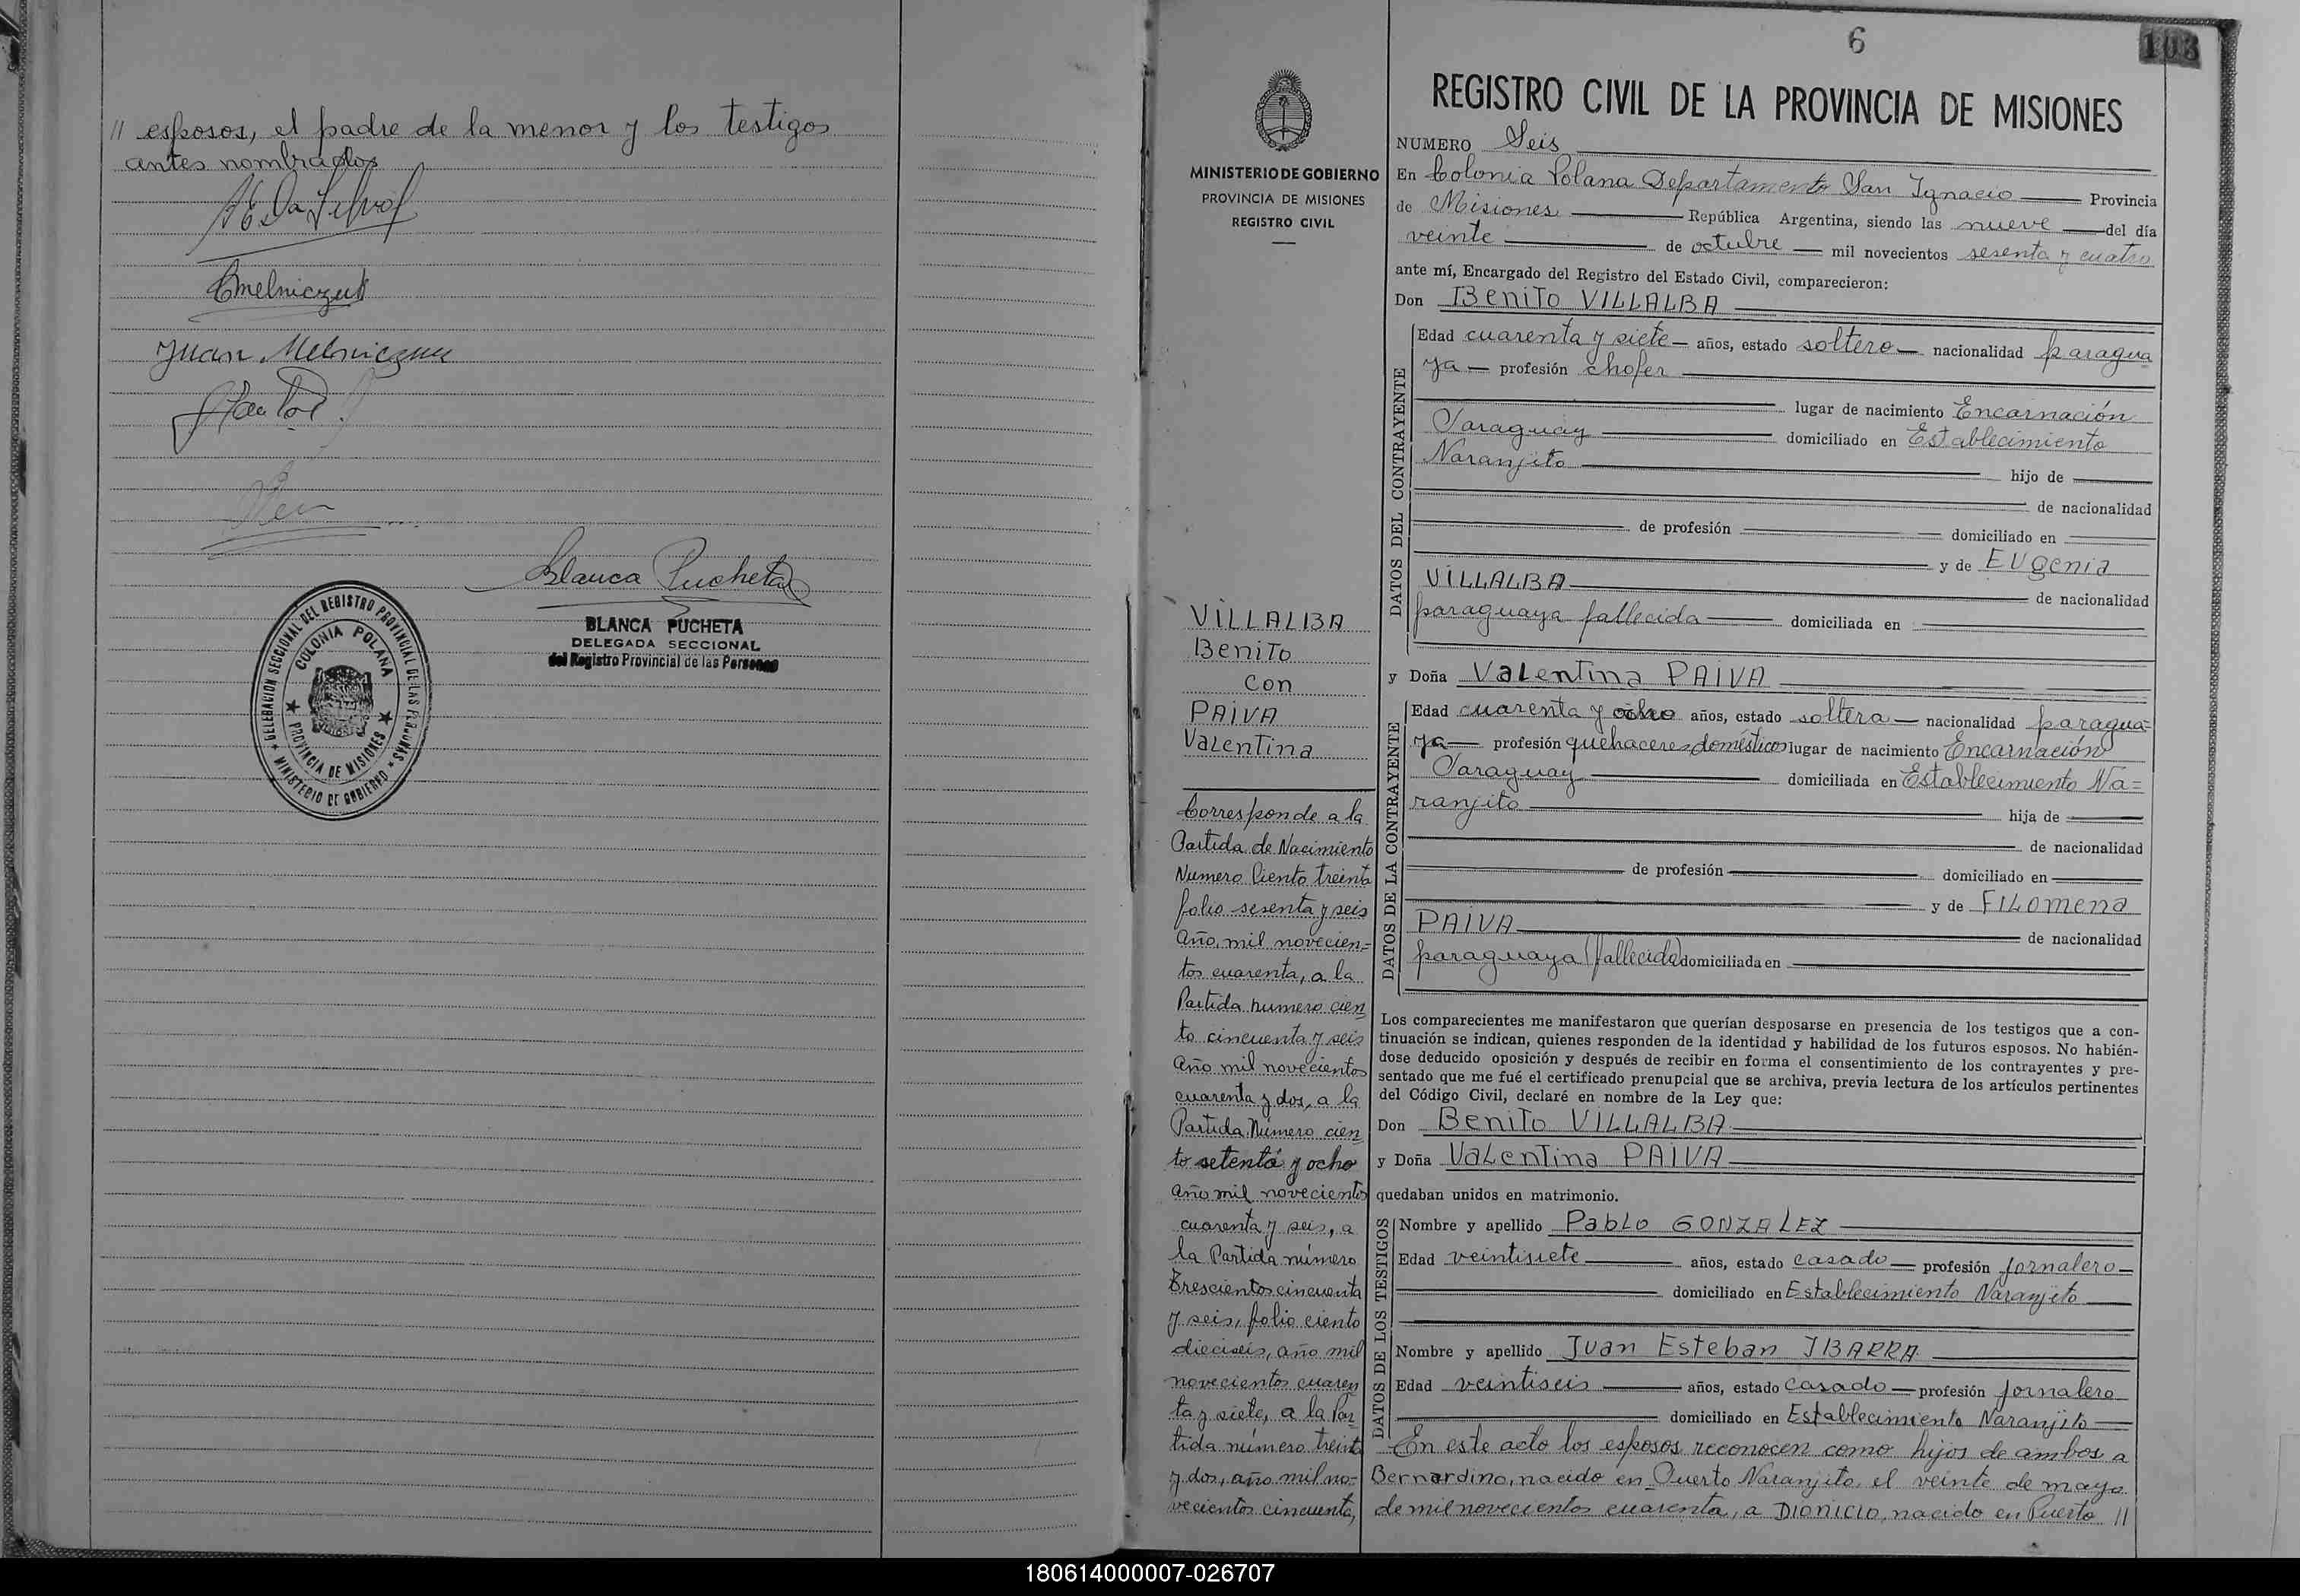 // esposos, el padre de la menor y los testigos
antes nombrados
Juan Melniczuk
Blanca Pucheta
BLANCA PUCHETA
DELEGADA SECCIONAL
del Registro Provincial de las Personas
DELEGACION SECCIONAL DEL REGISTRO PROVINCIAL DE LAS PERSONAS
MINISTERIO DE GOBIERNO
COLONIA POLANA
PROVINCIA DE MISIONES
6
103
MINISTERIO DE GOBIERNO
PROVINCIA DE MISIONES
REGISTRO CIVIL
VILLALBA
Benito
con
PAIVA
Valentina
Corresponde a la
Partida de Nacimiento
Numero Ciento treinta
folio sesenta y seis
año mil novecien=
tos cuarenta, a la
Partida numero cien
to cincuenta y seis
año mil novecientos
cuarenta y dos, a la
Partida Número cien
to setenta y ocho
año mil novecientos
cuarenta y seis, a
la Partida número
trescientos cincuenta
y seis, folio ciento
dieciseis, año mil
novecientos cuaren
ta y siete, a la Par
tida número treinta
y dos, año mil no=
vecientos cincuenta,
REGISTRO CIVIL DE LA PROVINCIA DE MISIONES
NUMERO Seis
En Colonia Polana Departamento San Ignacio Provincia
de Misiones República Argentina, siendo las nueve del día
veinte de octubre mil novecientos sesenta y cuatro
ante mí, Encargado del Registro del Estado Civil, comparecieron:
Don Benito VILLALBA
DATOS DEL CONTRAYENTE
Edad cuarenta y siete años, estado soltero nacionalidad paragua
ya profesión chofer
lugar de nacimiento Encarnación
Paraguay domiciliado en Establecimiento
Naranjito hijo de
de nacionalidad
de profesión domiciliado en
y de Eugenia
VILLALBA de nacionalidad
paraguaya fallecida domiciliada en
y Doña Valentina PAIVA
DATOS DE LA CONTRAYENTE
Edad cuarenta y ocho años, estado soltera nacionalidad paragua=
ya profesión quehaceres domésticos lugar de nacimiento Encarnación
Paraguay domiciliada en Establecimiento Na=
ranjito hija de
de nacionalidad
de profesión domiciliado en
y de Filomena
PAIVA de nacionalidad
paraguaya (fallecida) domiciliada en
Los comparecientes me manifestaron que querían desposarse en presencia de los testigos que a con-
tinuación se indican, quienes responden de la identidad y habilidad de los futuros esposos. No habién-
dose deducido oposición y después de recibir en forma el consentimiento de los contrayentes y pre-
sentado que me fué el certificado prenupcial que se archiva, previa lectura de los artículos pertinentes
del Código Civil, declaré en nombre de la Ley que:
Don Benito VILLALBA
y Doña Valentina PAIVA
quedaban unidos en matrimonio.
DATOS DE LOS TESTIGOS
Nombre y apellido Pablo GONZALEZ
Edad veintisiete años, estado casado profesión jornalero
domiciliado en Establecimiento Naranjito
Nombre y apellido Juan Esteban IBARRA
Edad veintiseis años, estado casado profesión jornalero
domiciliado en Establecimiento Naranjito
En este acto los esposos reconocen como hijos de ambos a
Bernardino, nacido en Puerto Naranjito, el veinte de mayo
de mil novecientos cuarenta, a DIONICIO, nacido en Puerto //
180614000007-026707